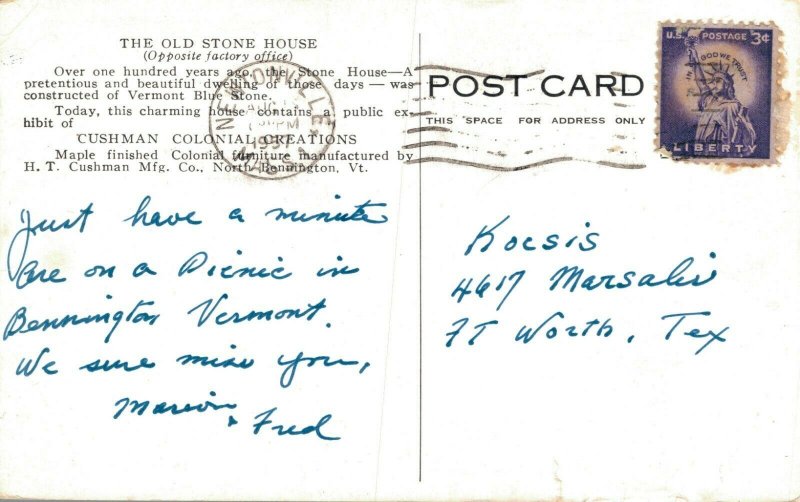 THE OLD STONE HOUSE
(Opposite factory office)
Over one hundred years ago, the Stone House—A
pretentious and beautiful dwelling of those days — was
constructed of Vermont Blue Stone.
Today, this charming house contains a public ex-
hibit of
CUSHMAN COLONIAL CREATIONS
Maple finished Colonial furniture manufactured by
H. T. Cushman Mfg. Co., North Bennington, Vt.
Just have a minute
are on a Picnic in
Bennington Vermont.
We sure miss you,
Marion
& Fred
POST CARD
THIS SPACE FOR ADDRESS ONLY
U.S. POSTAGE 3¢
IN GOD WE TRUST
LIBERTY
NEWTONVILLE
AUG
PM
1957
MASS.
Kocsis
4617 Marsalis
FT Worth, Tex